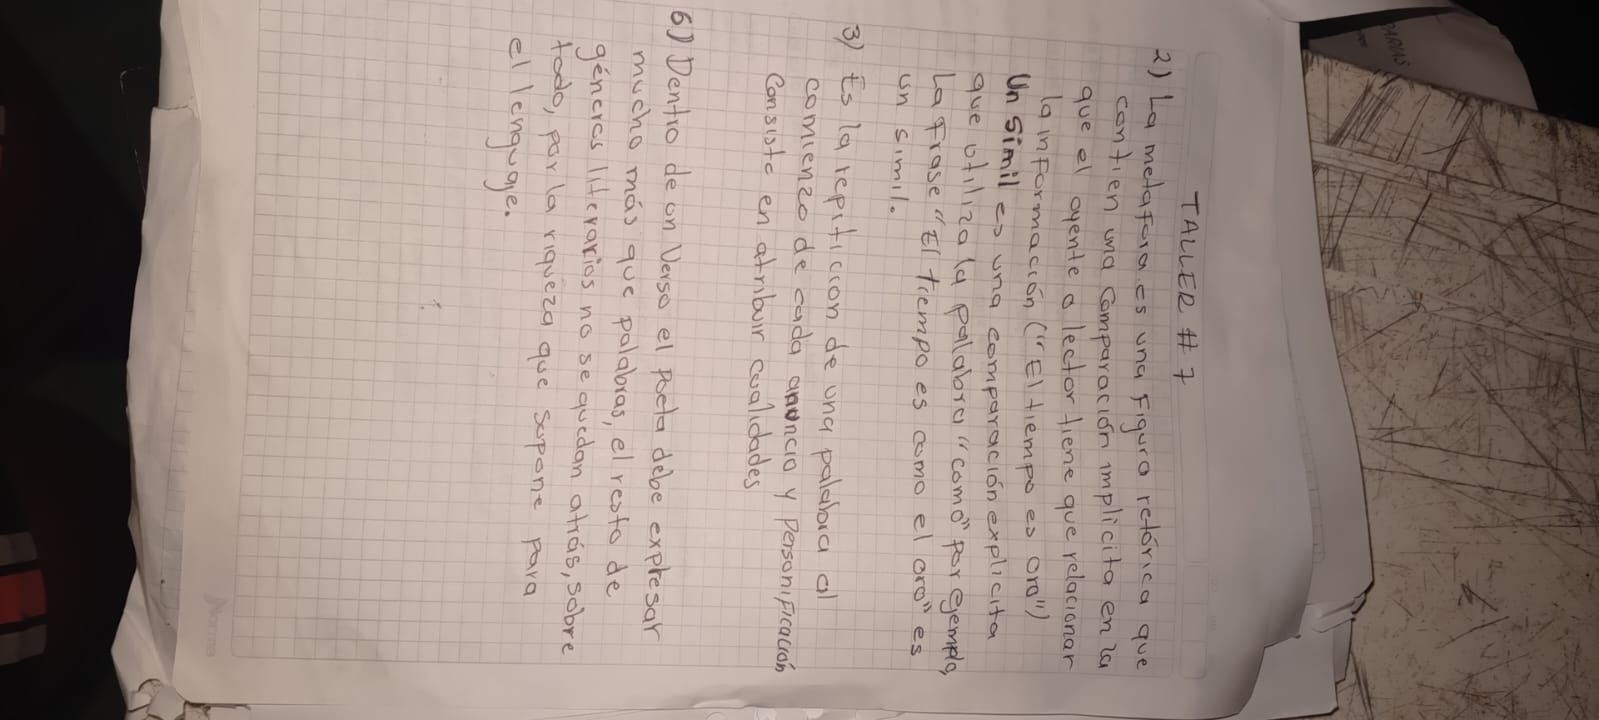 TALLER # 7
2) La metafora es una Figura retórica que
contien una comparación implicita en la
que el oyente o lector tiene que relacionar
la información ("El tiempo es oro")
Un Simil es una comparación explicita
que utiliza la palabra "como" por ejemplo,
La frase "El tiempo es como el oro" es
un simil.
3) Es la repiticion de una palabra al
comienzo de cada anuncio y Personificación
Consiste en atribuir cualidades
6) Dentro de un Verso el Poeta debe expresar
mucho más que palabras, el resto de
géneros literarios no se quedan atrás, sobre
todo, por la riqueza que supone para
el lenguaje.
Norma